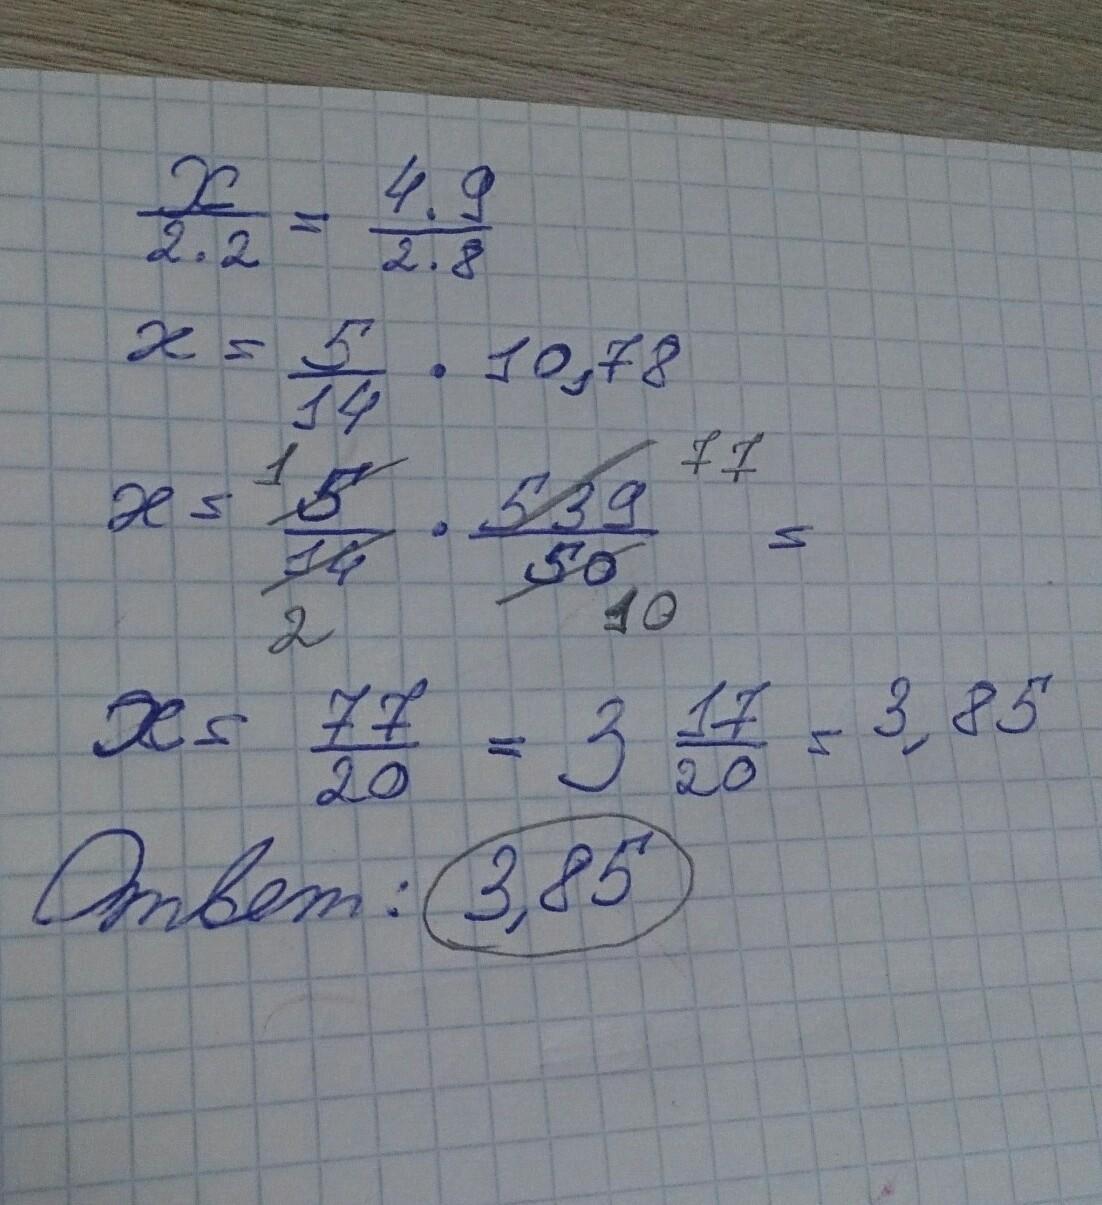 x/2.2 = 4.9/2.8
x = 5/14 · 10,78
x = 1 5/14 2 · 539/50 77 10 =
x = 77/20 = 3 17/20 = 3,85
Ответ: 3,85